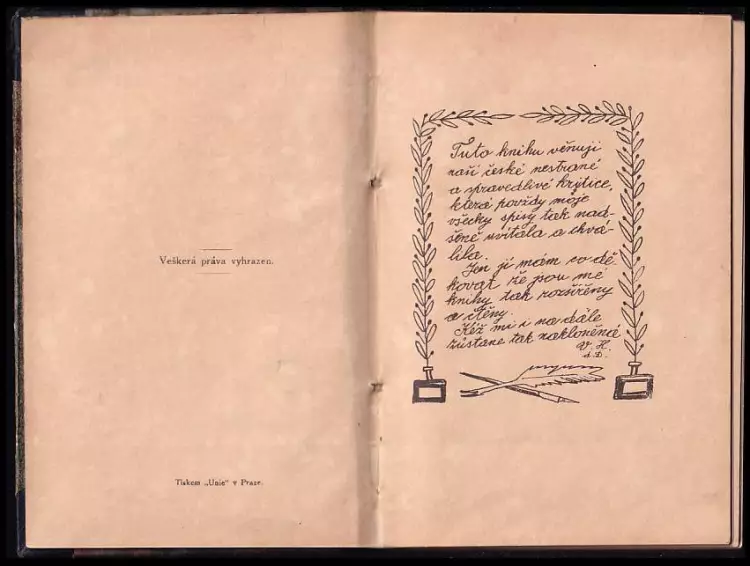 Veškerá práva vyhrazen.
Tiskem „Unie“ v Praze.
Tuto knihu věnuji
naší české nestrané
a spravedlivé krytice,
která povždy moje
všecky spisy tak nad-
šeně uvítala a chvá-
lila.
Jen jí mám co dě-
kovat že jsou mé
knihy tak rozšířeny
a čteny.
Kéž mi i na dále
zůstane tak nakloněná
V. H.